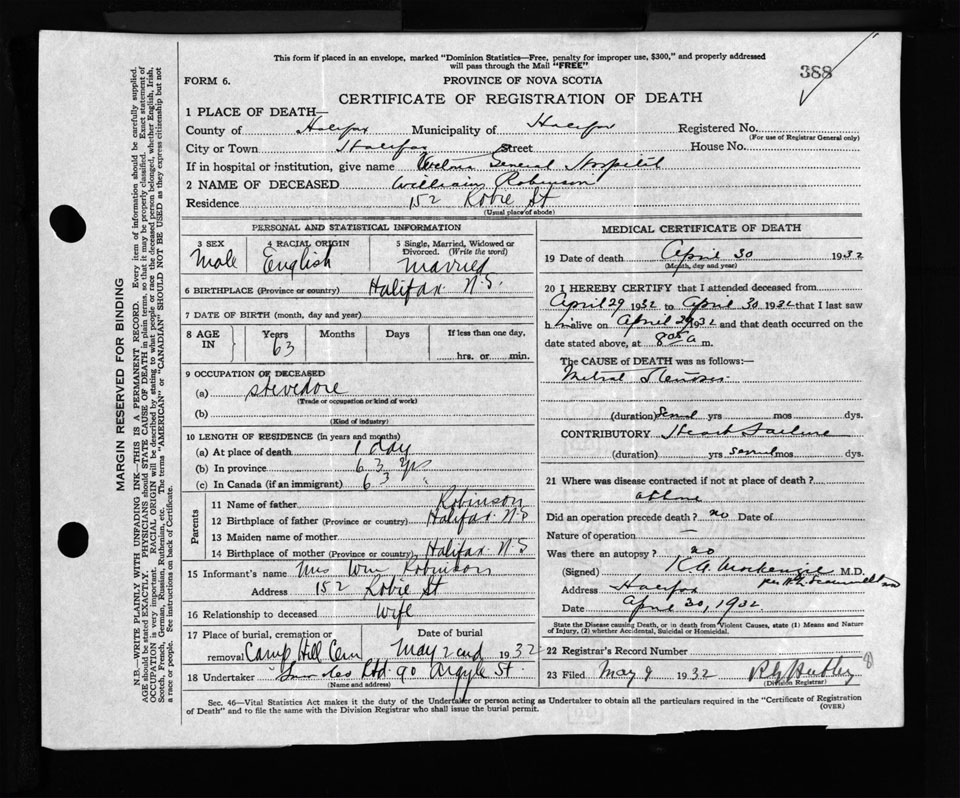 This form if placed in an envelope, marked "Dominion Statistics—Free, penalty for improper use, $300," and properly addressed
will pass through the Mail "FREE"
FORM 6.
PROVINCE OF NOVA SCOTIA
388
CERTIFICATE OF REGISTRATION OF DEATH
1 PLACE OF DEATH—
County of Halifax Municipality of Halifax Registered No.
(For use of Registrar General only)
City or Town Halifax Street House No.
If in hospital or institution, give name General Hospital
2 NAME OF DECEASED William Robinson
Residence 152 Robie St
(Usual place of abode)
PERSONAL AND STATISTICAL INFORMATION
3 SEX Male
4 RACIAL ORIGIN English
5 Single, Married, Widowed or Divorced. (Write the word) Married
6 BIRTHPLACE (Province or country) Halifax N.S.
7 DATE OF BIRTH (month, day and year)
8 AGE IN Years 63 Months Days If less than one day, hrs. or min.
9 OCCUPATION OF DECEASED
(a) Stevedore
(Trade or occupation or kind of work)
(b)
(Kind of industry)
10 LENGTH OF RESIDENCE (in years and months)
(a) At place of death 1 day
(b) In province 63 yrs
(c) In Canada (if an immigrant) 63 "
Parents
11 Name of father Robinson
12 Birthplace of father (Province or country) Halifax N-S
13 Maiden name of mother
14 Birthplace of mother (Province or country) Halifax N-S
15 Informant's name Mrs Wm Robinson
Address 152 Robie St
16 Relationship to deceased Wife
17 Place of burial, cremation or removal Camp Hill Cem
Date of burial May 2nd 1932
18 Undertaker Ltd 90 Argyle St
(Name and address)
MEDICAL CERTIFICATE OF DEATH
19 Date of death April 30 1932
(Month, day and year)
20 I HEREBY CERTIFY that I attended deceased from
April 29 1932 to April 30 1932 that I last saw
him alive on April 29 1932 and that death occurred on the
date stated above, at 8 05 a m.
The CAUSE of DEATH was as follows:—
Mitral Stenosis
(duration) yrs mos dys.
CONTRIBUTORY Heart Failure
(duration) yrs mos dys.
21 Where was disease contracted if not at place of death?
at home
Did an operation precede death? no Date of
Nature of operation —
Was there an autopsy? no
(Signed) K A MacKenzie M.D.
Address Halifax
Date April 30, 1932
State the Disease causing Death, or in death from Violent Causes, state (1) Means and Nature
of Injury, (2) whether Accidental, Suicidal or Homicidal.
22 Registrar's Record Number
23 Filed May 9 1932
Division Registrar)
Sec. 46—Vital Statistics Act makes it the duty of the Undertaker or person acting as Undertaker to obtain all the particulars required in the "Certificate of Registration
of Death" and to file the same with the Division Registrar who shall issue the burial permit.
(OVER)
MARGIN RESERVED FOR BINDING
N.B.—WRITE PLAINLY WITH UNFADING INK—THIS IS A PERMANENT RECORD. Every item of information should be carefully supplied.
AGE should be stated EXACTLY. PHYSICIANS should STATE CAUSE OF DEATH in plain terms, so that it may be properly classified. Exact statement of
OCCUPATION is very important. RACIAL ORIGIN will be described by stating to what people or race the deceased person belonged, whether English, Irish,
Scotch, French, German, Russian, Ruthenian, etc. The terms "AMERICAN" or "CANADIAN" SHOULD NOT BE USED as they express citizenship but not
a race or people. See instructions on back of Certificate.